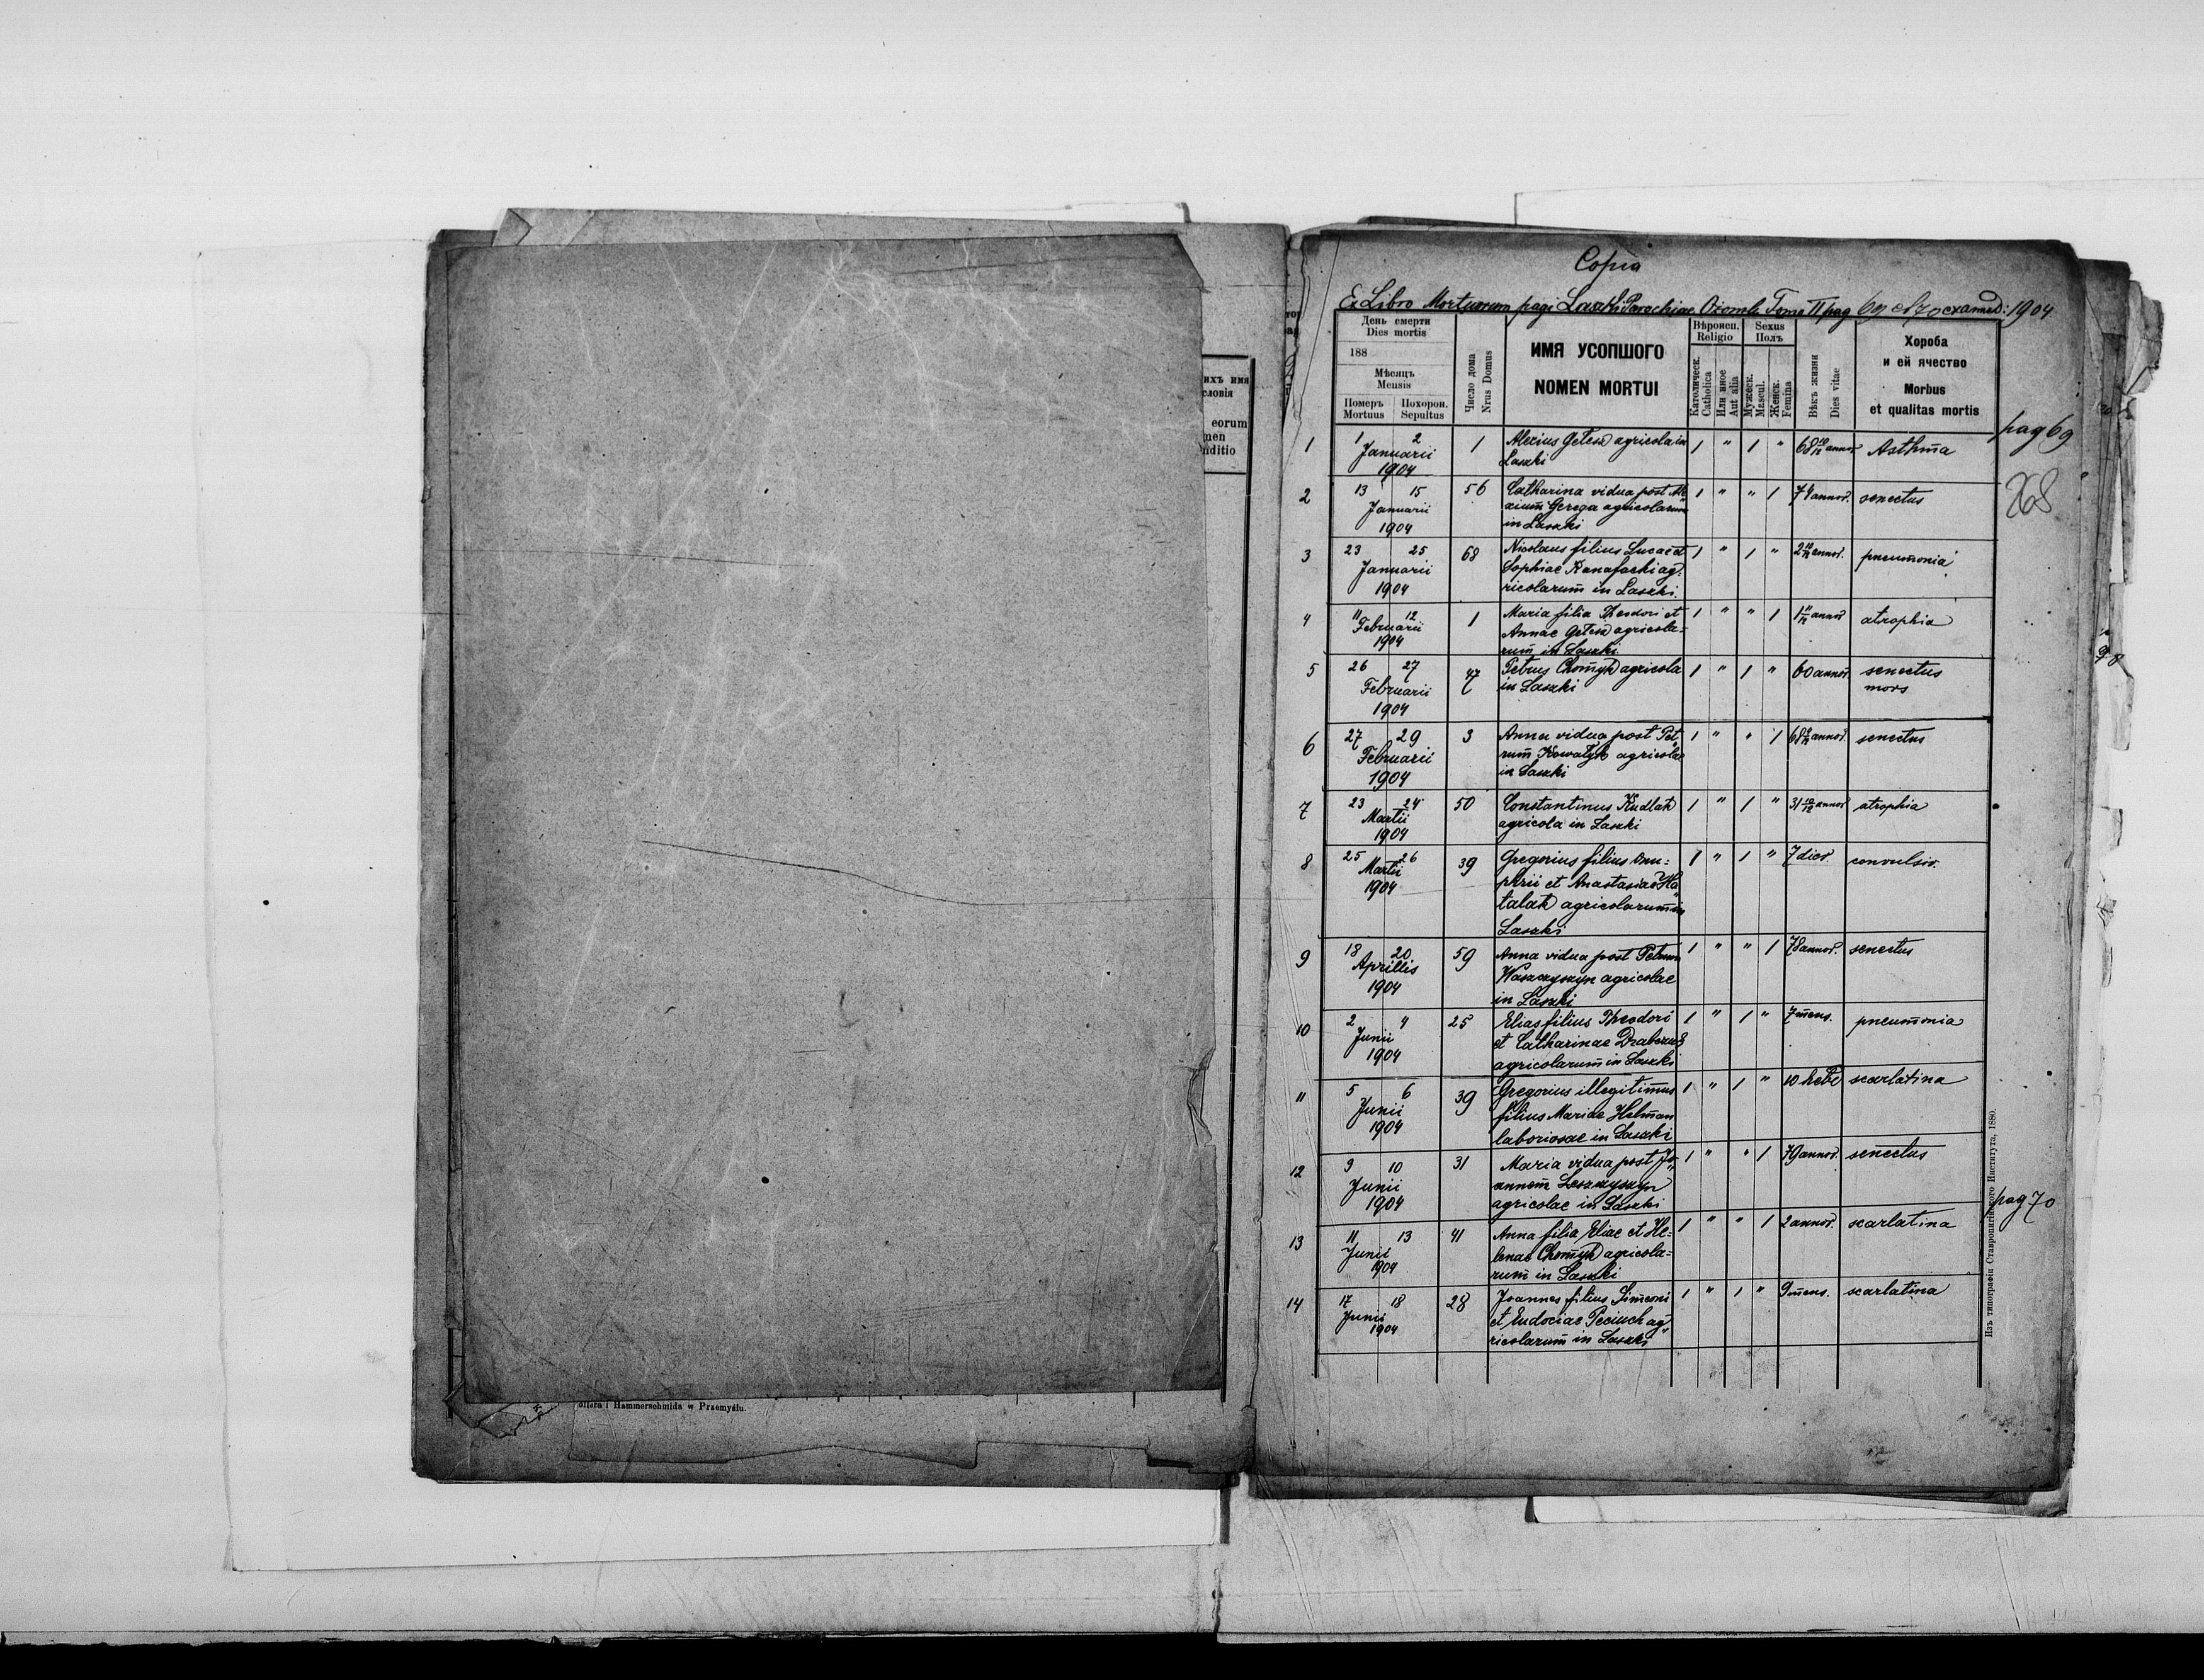 Copia
Ex Libro Mortuorum pagi Laszki Parochiae Ożomla Tomo II pag 69 et 70 ex anno D: 1904
День смерти
Dies mortis
188
Мѣсяць
Mensis
Померъ
Mortuus
Похорон.
Sepultus
Число дома
Nrus Domus
ИМЯ УСОПШОГО
NOMEN MORTUI
Вѣроисп.
Religio
Католическ.
Catholica
Или иное
Aut alia
Sexus
Полъ
Мужеск.
Mascul.
Женск.
Femina
Вѣкъ жизни
Dies vitae
Хороба
и ей ячество
Morbus
et qualitas mortis
pag 69
268
1 1 2 1 Alexius Getesz agricola in 1 " 1 " 68 10/12 annor Asthma
Januarii Laszki
1904
2 13 15 56 Catharina vidua post Ale 1 " " 1 74 annor. senectus
Januarii xium Gerega agricolarum
1904 in Laszki
3 23 25 68 Nicolaus filius Lucae et 1 " 1 " 2 10/12 annor. pneumonia
Januarii Sophiae Kanafaski ag
1904 ricolarum in Laszki.
4 11 12 1 Maria filia Theodori et 1 " " 1 annor atrophia
Februarii Annae Getesz agricola=
1904 rum in Laszki
5 26 27 47 Petrus Chomyk agricola 1 " 1 " 60 annor. senectus
Februarii in Laszki mors
1904
6 27 29 3 Anna vidua post Pet 1 " " 1 68 annor. senectus
Februarii rum Kowalyk agricolae
1904 in Laszki
7 23 24 50 Constantinus Kudlak 1 " 1 " 31 10/12 annor atrophia
Martii agricola in Laszki
1904
8 25 26 39 Gregorius filius Onu= 1 " 1 " 7 dier. convulsio.
Martii phrii et Anastasiae Ha
1904 talak agricolarum in
Laszki
9 18 20 59 Anna vidua post Petrum 1 " " 1 78 annor. senectus
Aprillis Waszczyszyn agricolae
1904 in Laszki
10 2 4 25 Elias filius Theodori 1 " 1 " 7 mens. pneumonia
Junii et Catharinae
1904 agricolarum in Laszki
11 5 6 39 Gregorius illegitimus 1 " 1 " 10 hebd scarlatina
Junii filius Mariae Helman
1904 laboriosae in Laszki
12 9 10 31 Maria vidua post Jo 1 " " 1 79 annor. senectus
Junii annem Leszczyszyn
1904 agricolae in Laszki
pag 70
13 11 13 41 Anna filia Eliae et He= 1 " " 1 2 annor. scarlatina
Junii lenae Chomyk agricola=
1904 rum in Laszki
14 17 18 28 Joannes filius Simeoni 1 " 1 " 9 mens. scarlatina
Junii et Eudociae Peciuch ag
1904 ricolarum in Laszki
Изъ типографіи Ставропигійского Института, 1880.
ихъ имя
словія
eorum
men
nditio
ollera i Hammerschmida w Przemyślu.